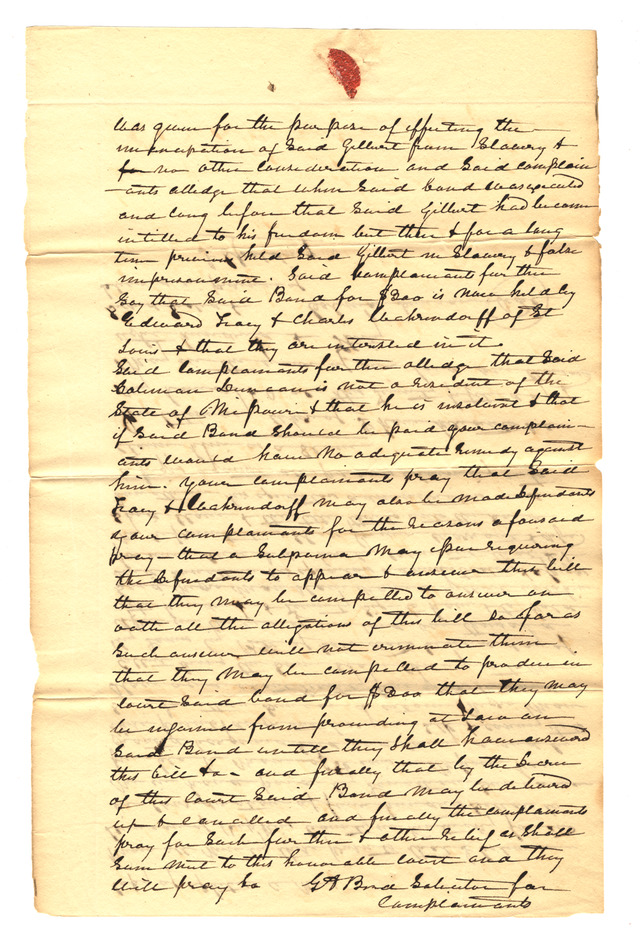 was given for the purpose of effecting the
emancipation of Said Gilbert from Slavery &
for no other consideration and Said complain
-ants alledge that when Said bond was executed
and long before that Said Gilbert had become
intitled to his freedom but then & for a long
time previous held Said Gilbert in Slavery & false
imprisonment. Said complainants further
Say that Said Bond for $ is now held by
Edward Tracy & Charles Wahrendorff of St
Louis & that they are interested in it
Said Complainants further alledge that Said
Coleman Duncan is not a resident of the
State of Missouri & that he is insolvent & that
if Said Bond Should be paid your complain-
ants would have no adequate remedy against
him. your complainants pray that Said
Tracy & Wahrendorff may also be made defendants
your complainants for the reasons aforesaid
pray - that a Subpoena may issue requiring
the defendants to appear & answer this bill
that they may be compelled to answer on
oath all the allegations of this bill So far as
Such answer will not criminate them
that they may be compelled to produce in
Court Said bond for $ that they may
be injoined from proceeding at Law on
Said Bond untill they Shall have answered
this bill &c - and finally that by the Decree
of this Court Said Bond may be delivered
up & cancelled and finally the complainants
pray for Such further & other relief as Shall
Seem meet to this honorable court and they
will pray &c Bird Solicitor for
Complainants